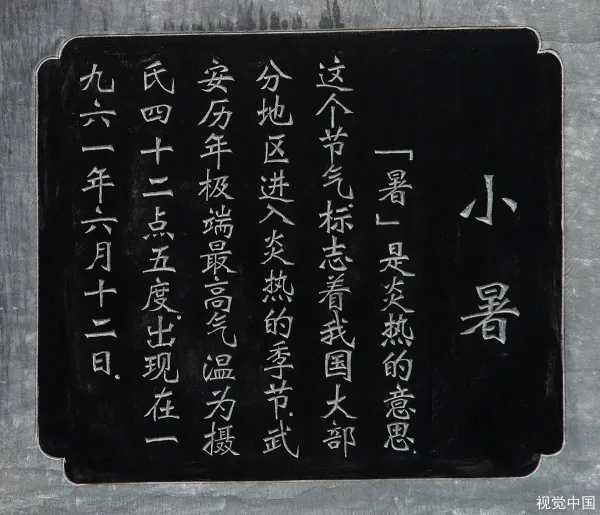 小暑
「暑」是炎热的意思.
这个节气.标志着我国大部
分地区进入炎热的季节.武
安历年极端最高气温为摄
氏四十二点五度.出现在一
九六一年六月十二日.
视觉中国